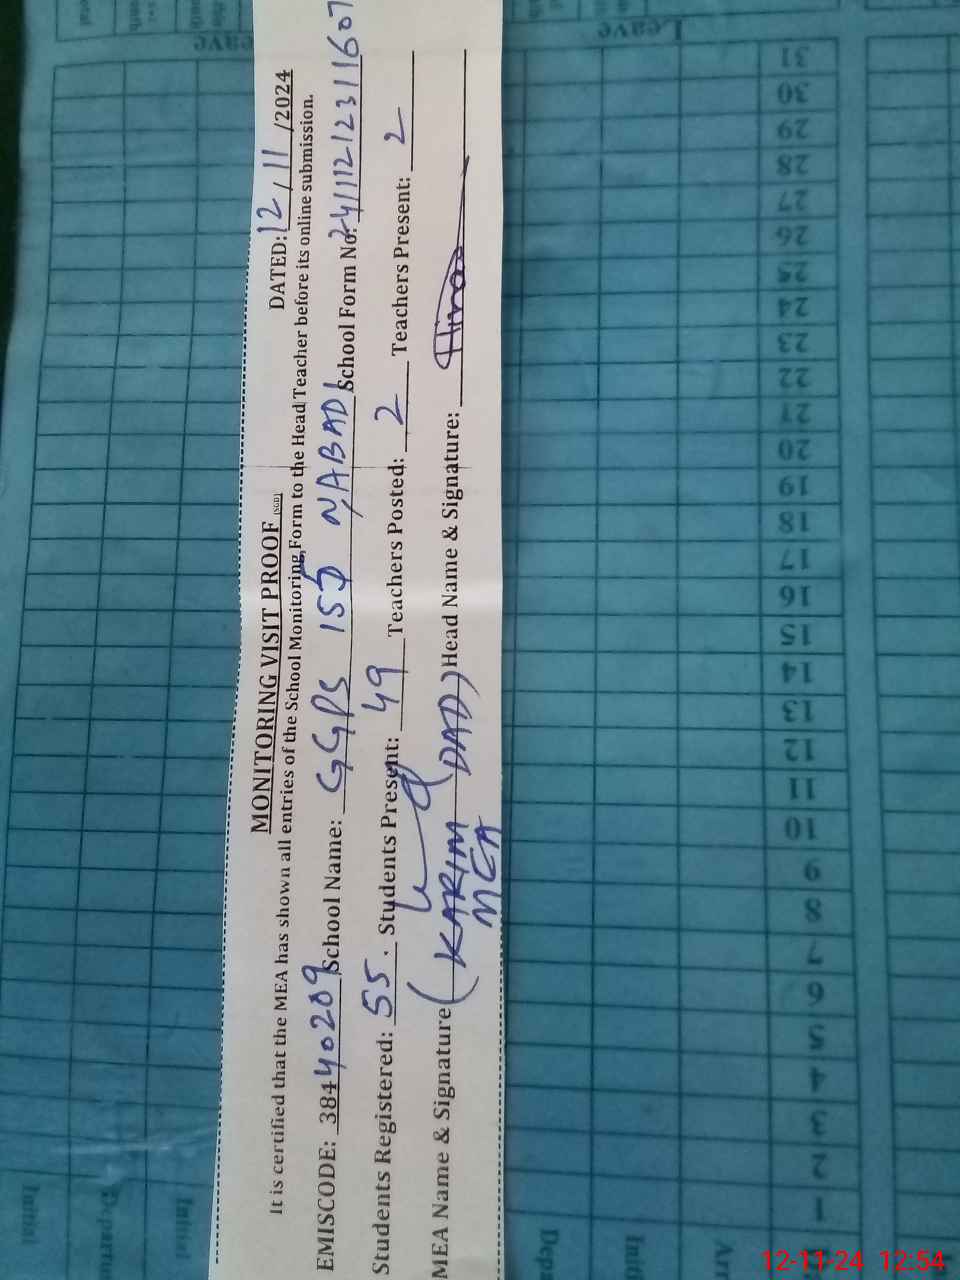 MONITORING VISIT PROOF (SGD)
DATED: 12 / 11 /2024
It is certified that the MEA has shown all entries of the School Monitoring Form to the Head Teacher before its online submission.
EMISCODE: 38440209 School Name: GGPS 155 N/ABADI School Form No: 241112123111607
Students Registered: 55. Students Present: 49 Teachers Posted: 2 Teachers Present: 2
MEA Name & Signature (KARIM DAD) Head Name & Signature: Hina
MEA
Leave
31
30
29
28
27
26
25
24
23
22
21
20
19
18
17
16
15
14
13
12
11
10
9
8
7
6
5
4
3
2
1
Initial
Departure
Initial
12-11-24 12:54